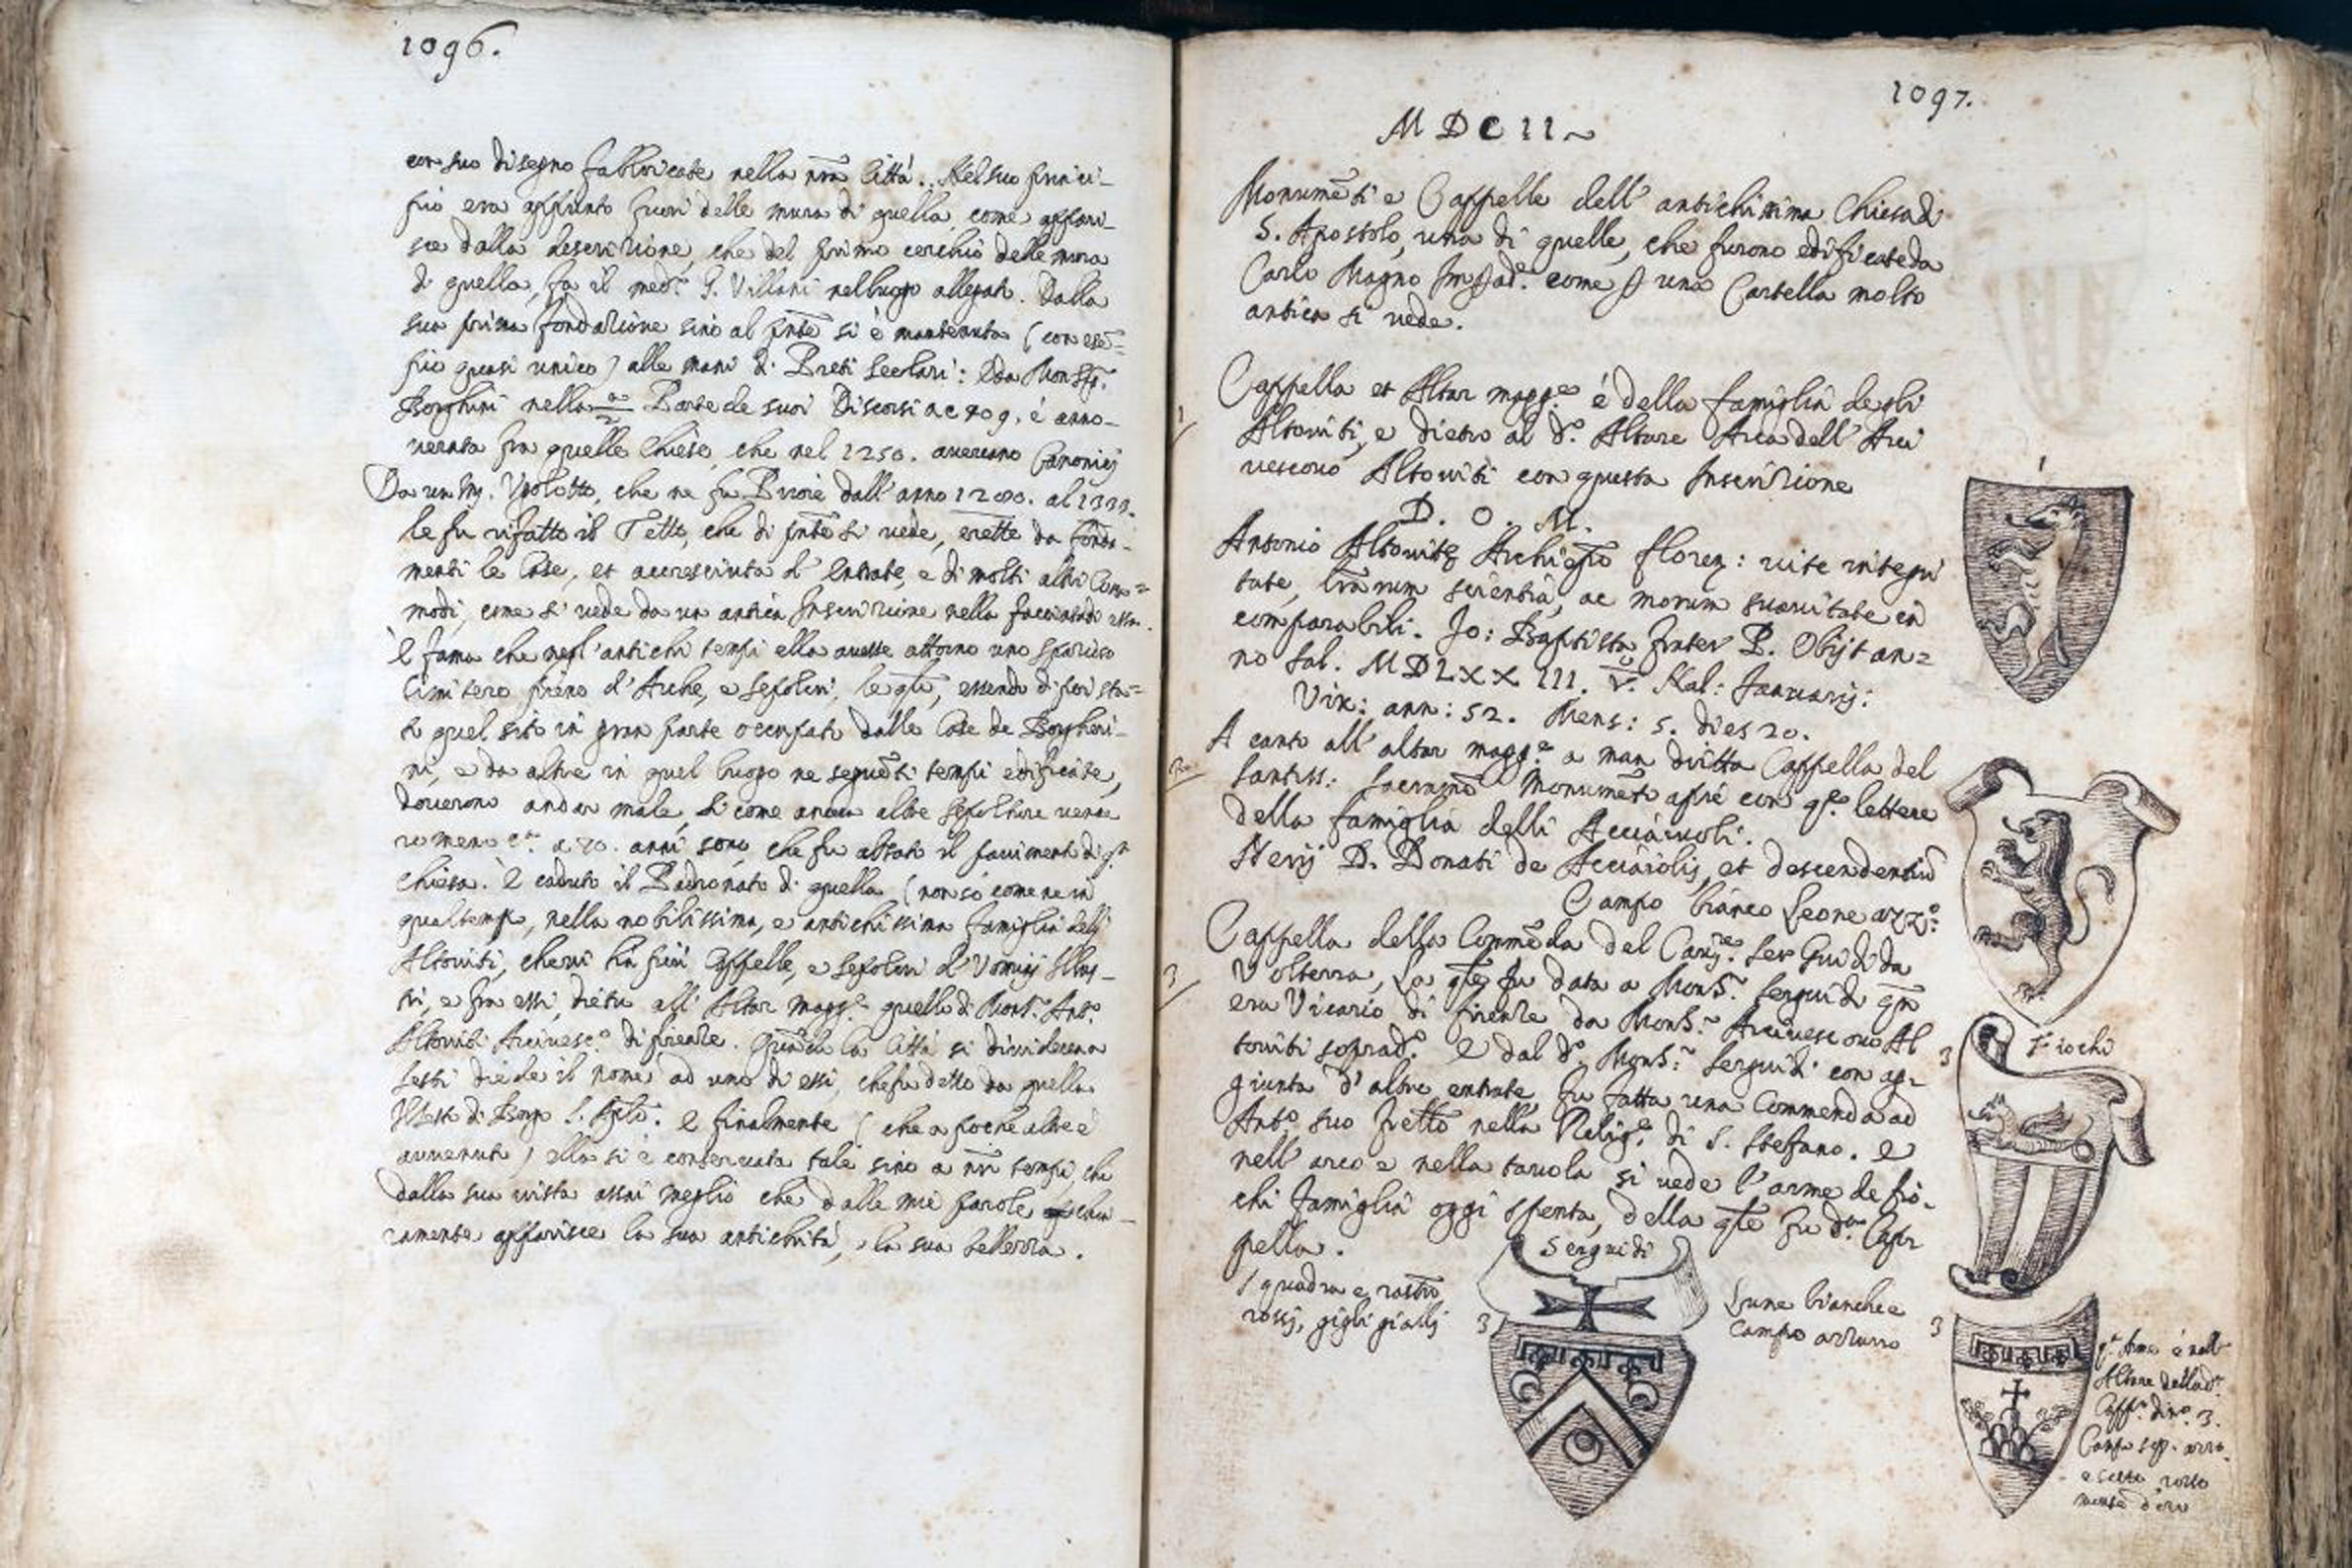 1096.
con suo disegno fabbricate nella nra Città. Nel suo princi-
pio era appunto fuori delle mura di quella, come appari-
sce dalla descrizione, che del primo cerchio delle mura
di quella, fa il med.o G. Villani nel luogo allegato. Dalla
sua prima fondazione sino al pnte si è mantenuta (con ese-
pio quasi unico) alle mani di Preti Secolari: e da Mons.
Borghini nella 2a Parte de suoi Discorsi a c. 409. è anno-
verata fra quelle Chiese, che nel 1250. aveano Canonici
Da un che ne fu Priore dall'anno 1200. al 1333.
le fu rifatto il Tetto, che di pnte si vede, erette da fonda-
menti le Case, et accresciuta d'Entrate, e di molti altri Como-
modi, come si vede da un antica Inscrizione nella facciata di essa.
È fama che negl'antichi tempi ella avesse attorno uno spazioso
Cimitero pieno d'Arche, e sepolcri, le qli, essendo di poi sta-
to quel sito in gran parte occupato dalle Case de Borgheri-
ni, e da altre in quel luogo ne seguēti tempi edificate,
doverono andar male, sì come ancora altre sepolture
meno a 70. anni sono, che fu alzato il pavimento di q.a
chiesa. È caduto il Padronato di quella (non so come ne in
qual tempo, nella nobilissima, e antichissima famiglia delli
Altoviti, che vi ha più Cappelle, e sepolcri d'Uomini Illus-
tri, e fra essi, dietro all'Altar magg.e quello di Mons.r Ant.o
Altoviti Arcivesc.o di firenze. Quando la Città si divideva a
sesti diede il nome ad uno di essi, che fu detto da quella
il Sesto di Borgo S. Aplo. E finalmente (che a poche altre è
avvenuto) ella si è conservata tale sino a nri tempi, che
dalla sua vista assai meglio che dalle mie parole chia-
ramente apparisce la sua antichità, e la sua bellezza.
1097.
MDCII
Monumēti e Cappelle dell'antichissima Chiesa di
S. Apostolo, una di quelle, che furono edificate da
Carlo Magno Impad.e come p una Cartella molto
antica si vede.
1
Cappella et Altar magg.e è della famiglia degli
Altoviti, e dietro al d.o Altare Arca dell'Arci
vescovo Altoviti con questa Inscrizione
D. O. M.
Antonio Altovitæ Archiepō floren: vite integri
tate, lrārum scientia, ac morum suavitate in
comparabili. Jo: Baptista frater P. Obijt an=
no sal. MDLXXIII. V. Kal: Januarij:
Vix: ann: 52. Mens: 5. dies 20.
2
A canto all'altar magg.e a man dritta Cappella del
Santiss: Sacramō Monumēto apiè con q.te lettere
della famiglia delli Acciaiuoli.
Sterij D. Donati de Acciaiolis, et descendentiū
Campo bianco Leone azz.o
3
Cappella della Commēda del Cav.re Ser Guidi da
Volterra, la qle fu data a Mons.r Serguidi qn
era Vicario di firenze da Mons.r Arcivescovo Al
toviti soprad.o E dal d.o Mons.r Serguidi con ag-
giunta d'altre entrate, fu fatta una Commenda ad
Ant.o suo frello nella Relig.e di S. Stefano. E
nell'arco e nella tavola si vede l'arme de fio-
chi famiglia oggi spenta, della qle fu d.a Cap-
pella.
Serguidi
Squadra e rastro
rossi, gigli gialli
3
Lune bianche
Campo azzurro
1
3
Fiochi
3
q.a Arme è nell
Altare della d.a
Capp.a di n.o 3.
Campo sop. azzu.
e sotto rosso
d'oro